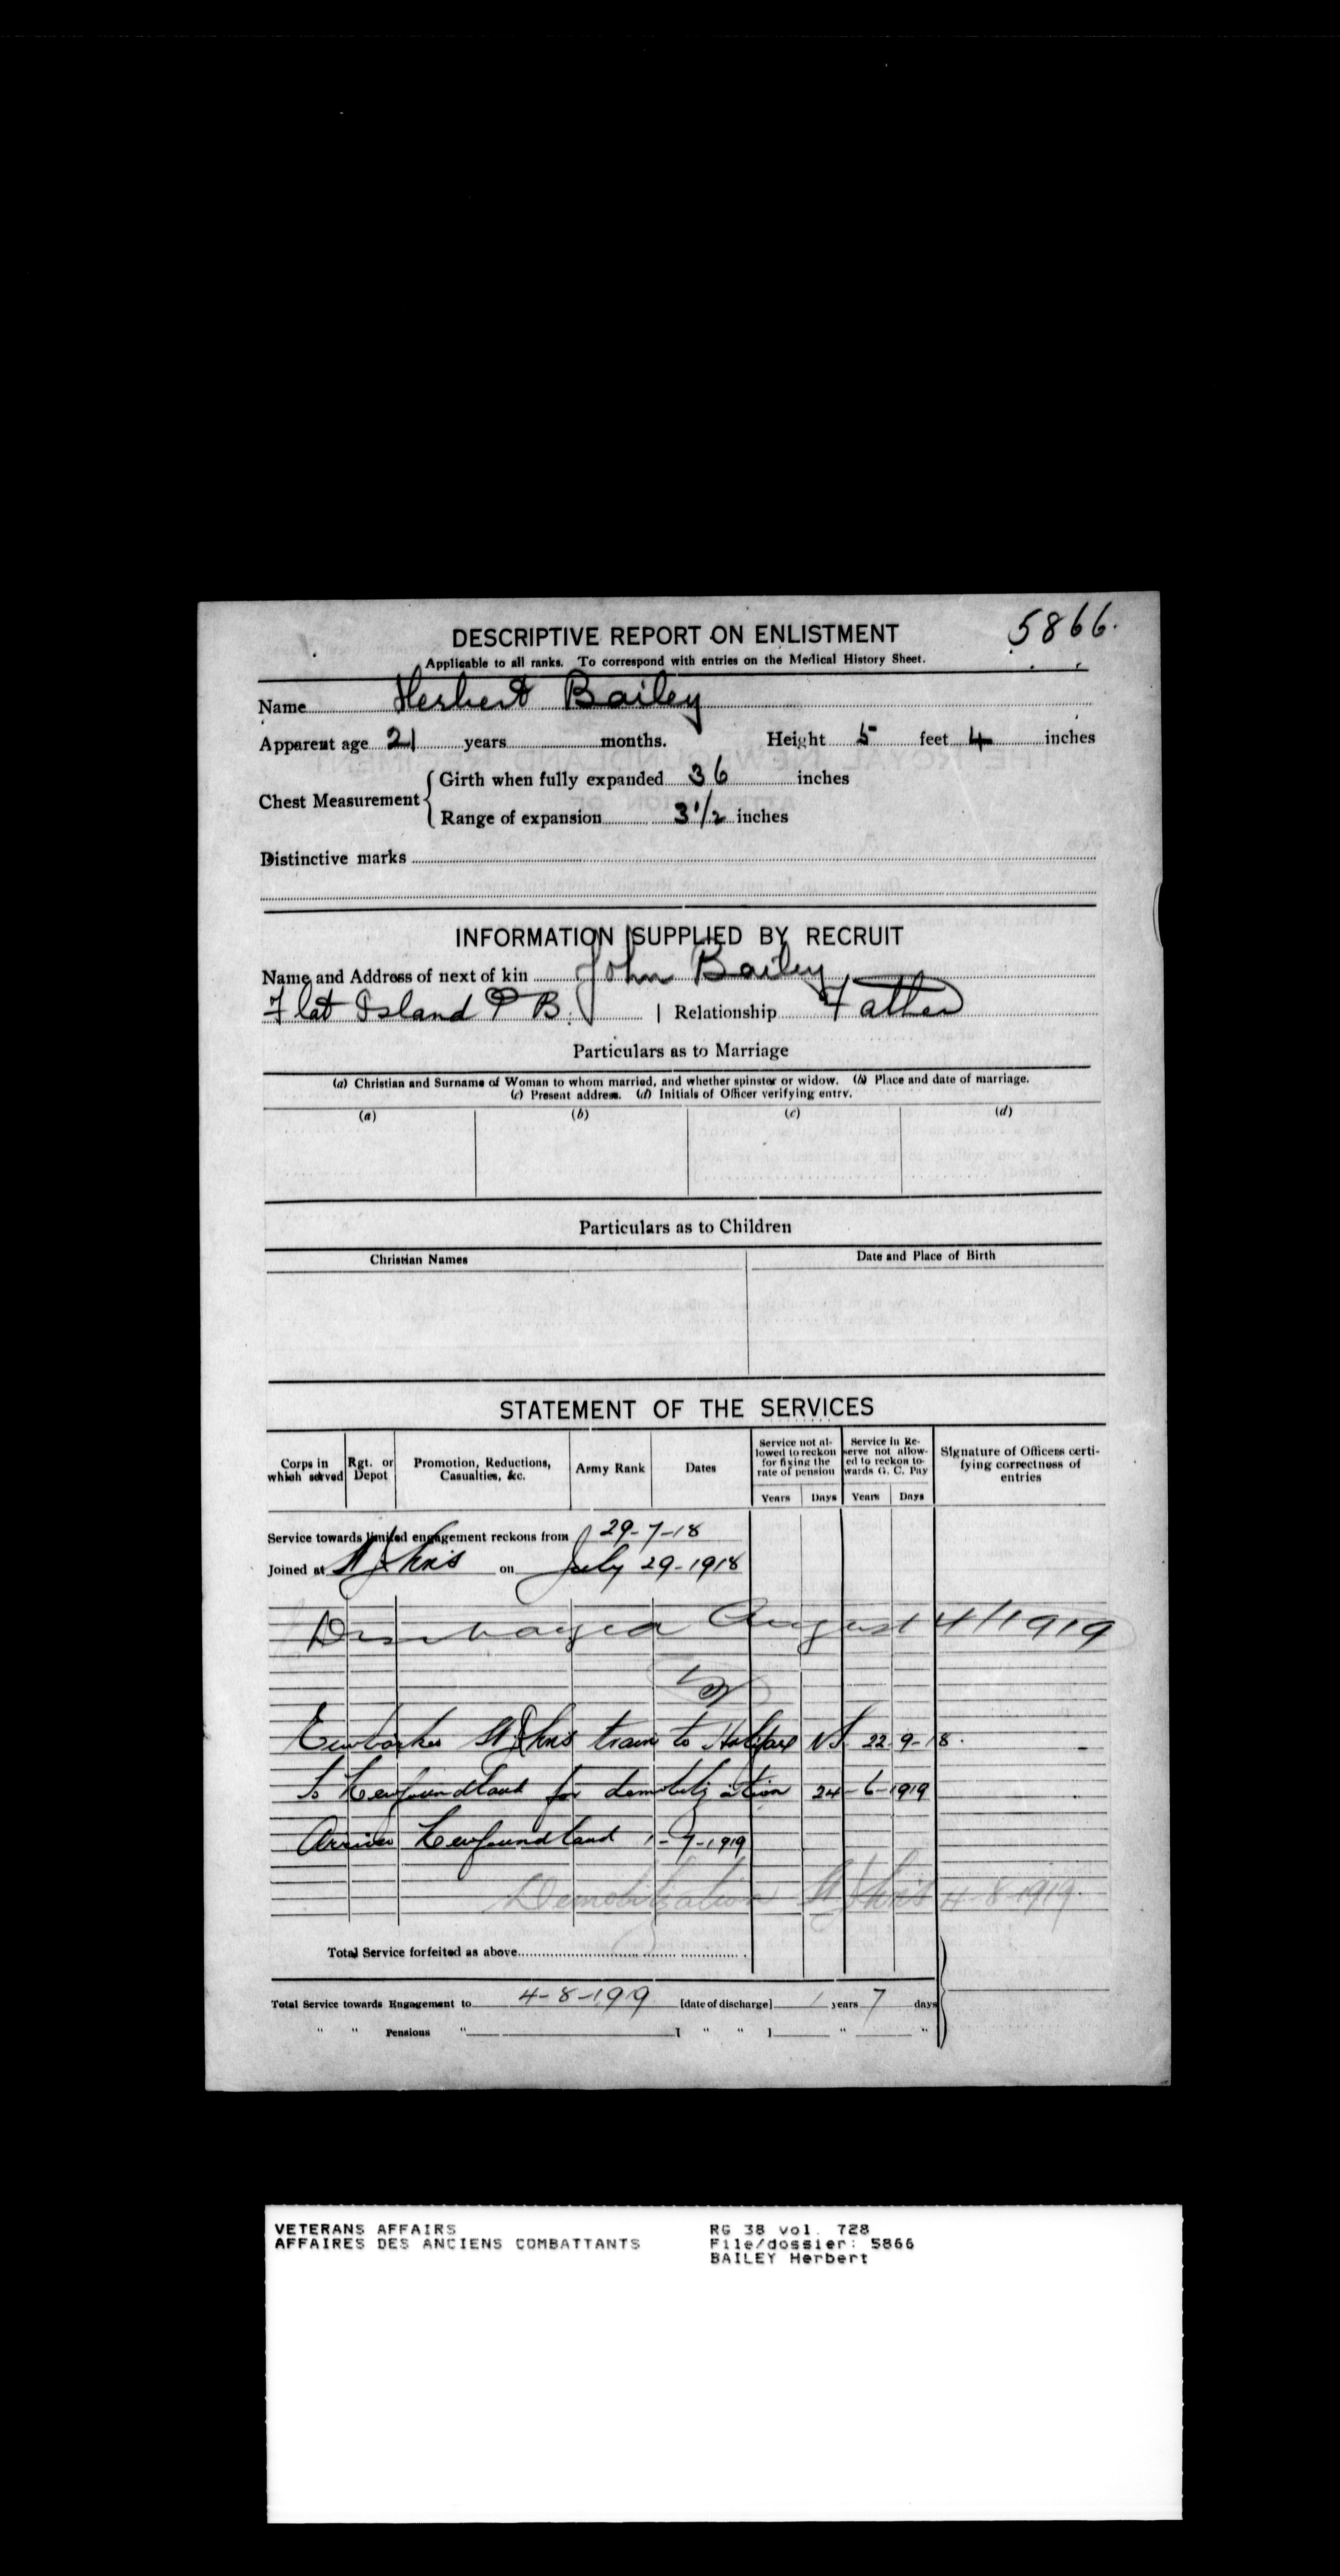 5866.
DESCRIPTIVE REPORT ON ENLISTMENT
Applicable to all ranks. To correspond with entries on the Medical History Sheet.
Name Herbert Bailey
Apparent age 21 years months. Height 5 feet 4 inches
Chest Measurement { Girth when fully expanded 36 inches
Range of expansion 3 1/2 inches
Distinctive marks
INFORMATION SUPPLIED BY RECRUIT
Name and Address of next of kin John Bailey
Flat Island P B. | Relationship Father
Particulars as to Marriage
(a) Christian and Surname of Woman to whom married, and whether spinster or widow. (b) Place and date of marriage.
(c) Present address. (d) Initials of Officer verifying entry.
(a) (b) (c) (d)
Particulars as to Children
Christian Names Date and Place of Birth
STATEMENT OF THE SERVICES
Corps in which served Rgt. or Depot Promotion, Reductions, Casualties, &c. Army Rank Dates Service not allowed to reckon for fixing the rate of pension Service in Reserve not allowed to reckon towards G. C. Pay Signature of Officers certifying correctness of entries
Years Days Years Days
Service towards limited engagement reckons from 29-7-18
Joined at St Johns on July 29-1918
Discharged August 4/1919
Embarked St Johns train to Halifax NS. 22-9-18.
To Newfoundland for demobilization 24-6-1919
Arrived Newfoundland 1-7-1919
Demobilization St Johns 4-8-1919.
Total Service forfeited as above
Total Service towards Engagement to 4-8-1919 [date of discharge] 1 years 7 days
" " Pensions " [ " " ] " "
VETERANS AFFAIRS RG 38 vol. 728
AFFAIRES DES ANCIENS COMBATTANTS File/dossier: 5866
BAILEY Herbert